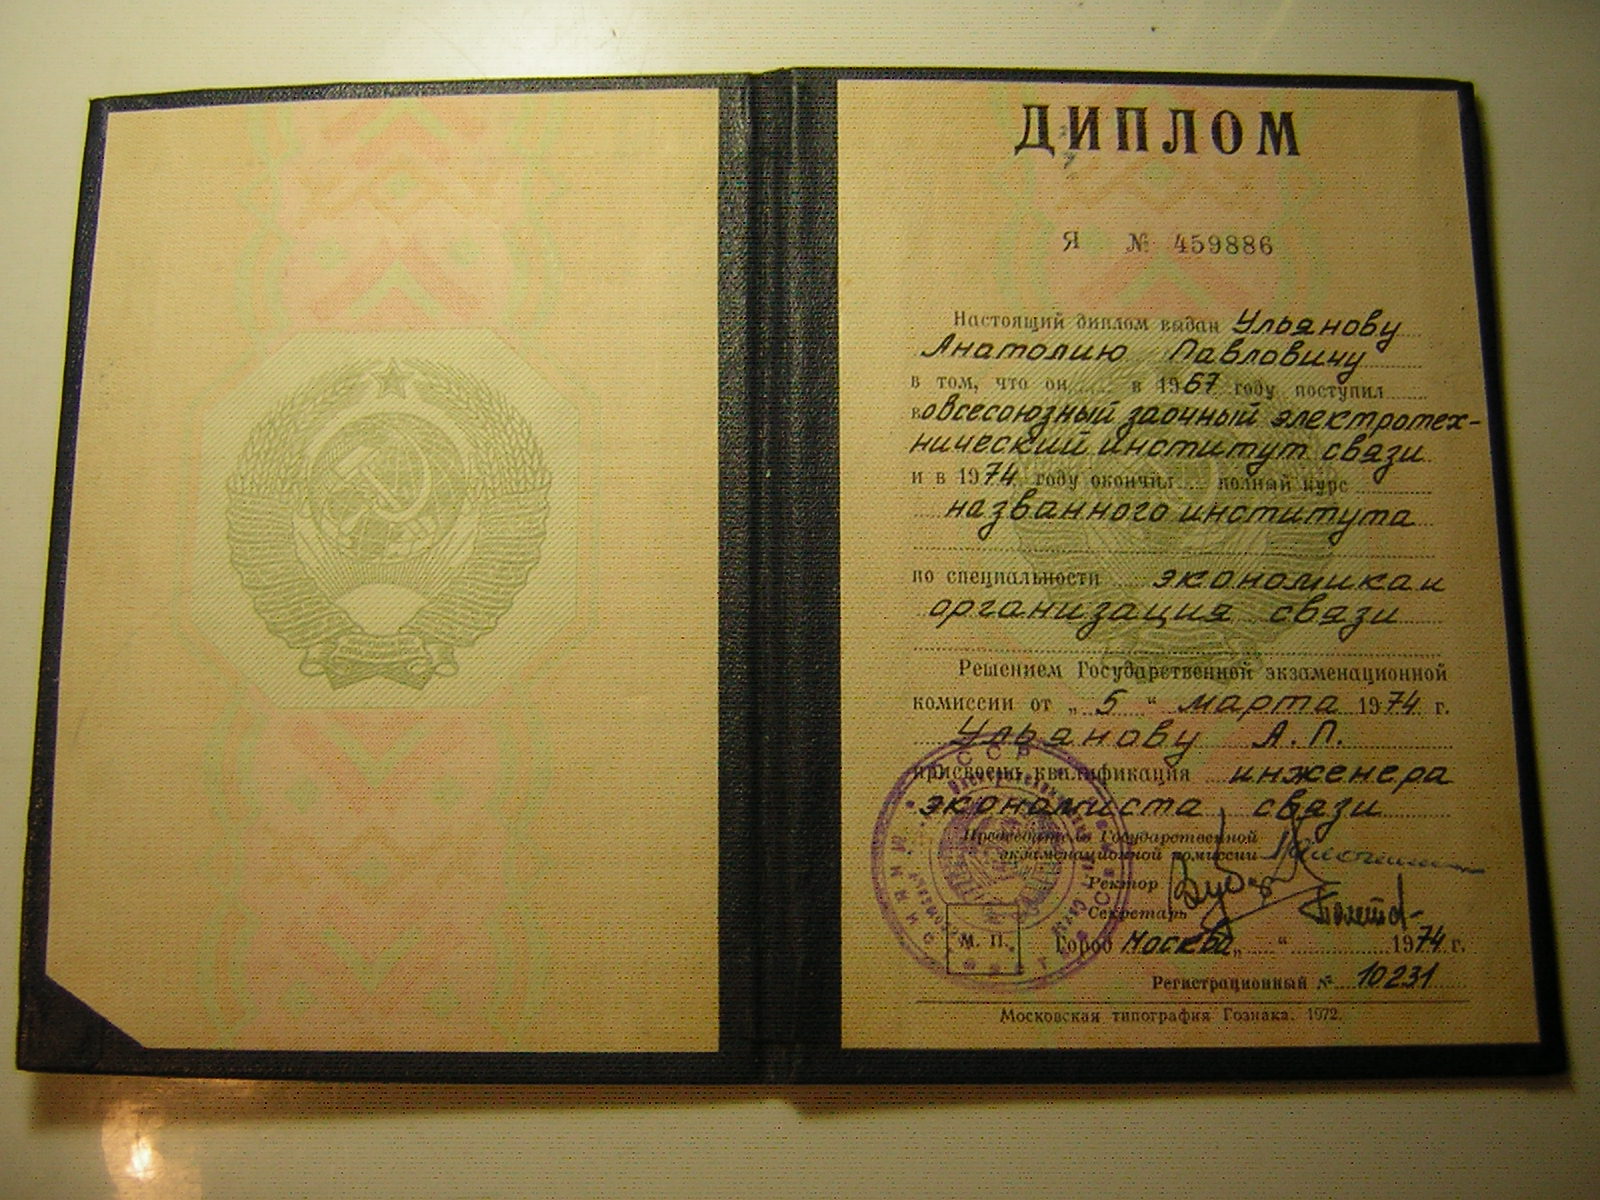 ДИПЛОМ
Я № 459886
Настоящий диплом выдан Ульянову
Анатолию Павловичу
в том, что он в 1967 году поступил
во всесоюзный заочный электротех-
нический институт связи
и в 1974 году окончил полный курс
названного института
по специальности экономика и
организация связи
Решением Государственной экзаменационной
комиссии от „ 5 “ марта 1974 г.
Ульянову А.П.
присвоена квалификация инженера
экономиста связи
Председатель Государственной
экзаменационной комиссии
Ректор
Секретарь
М. П. Город Москва „ “ 1974 г.
Регистрационный № 10231
Московская типография Гознака. 1972.